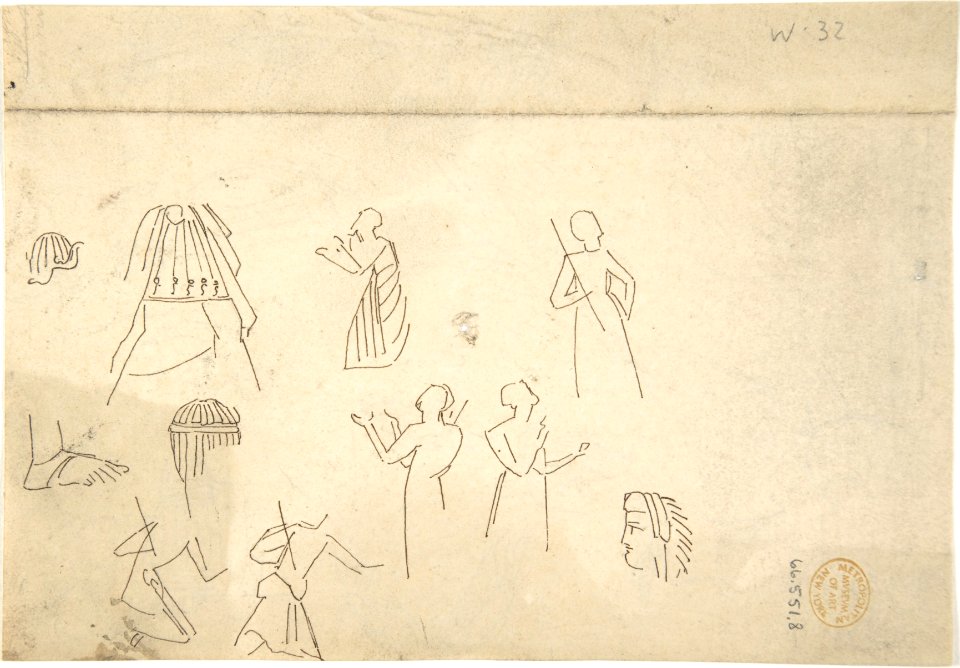 W·32
66.551.8
METROPOLITAN
MUSEUM
OF ART
NEW YORK